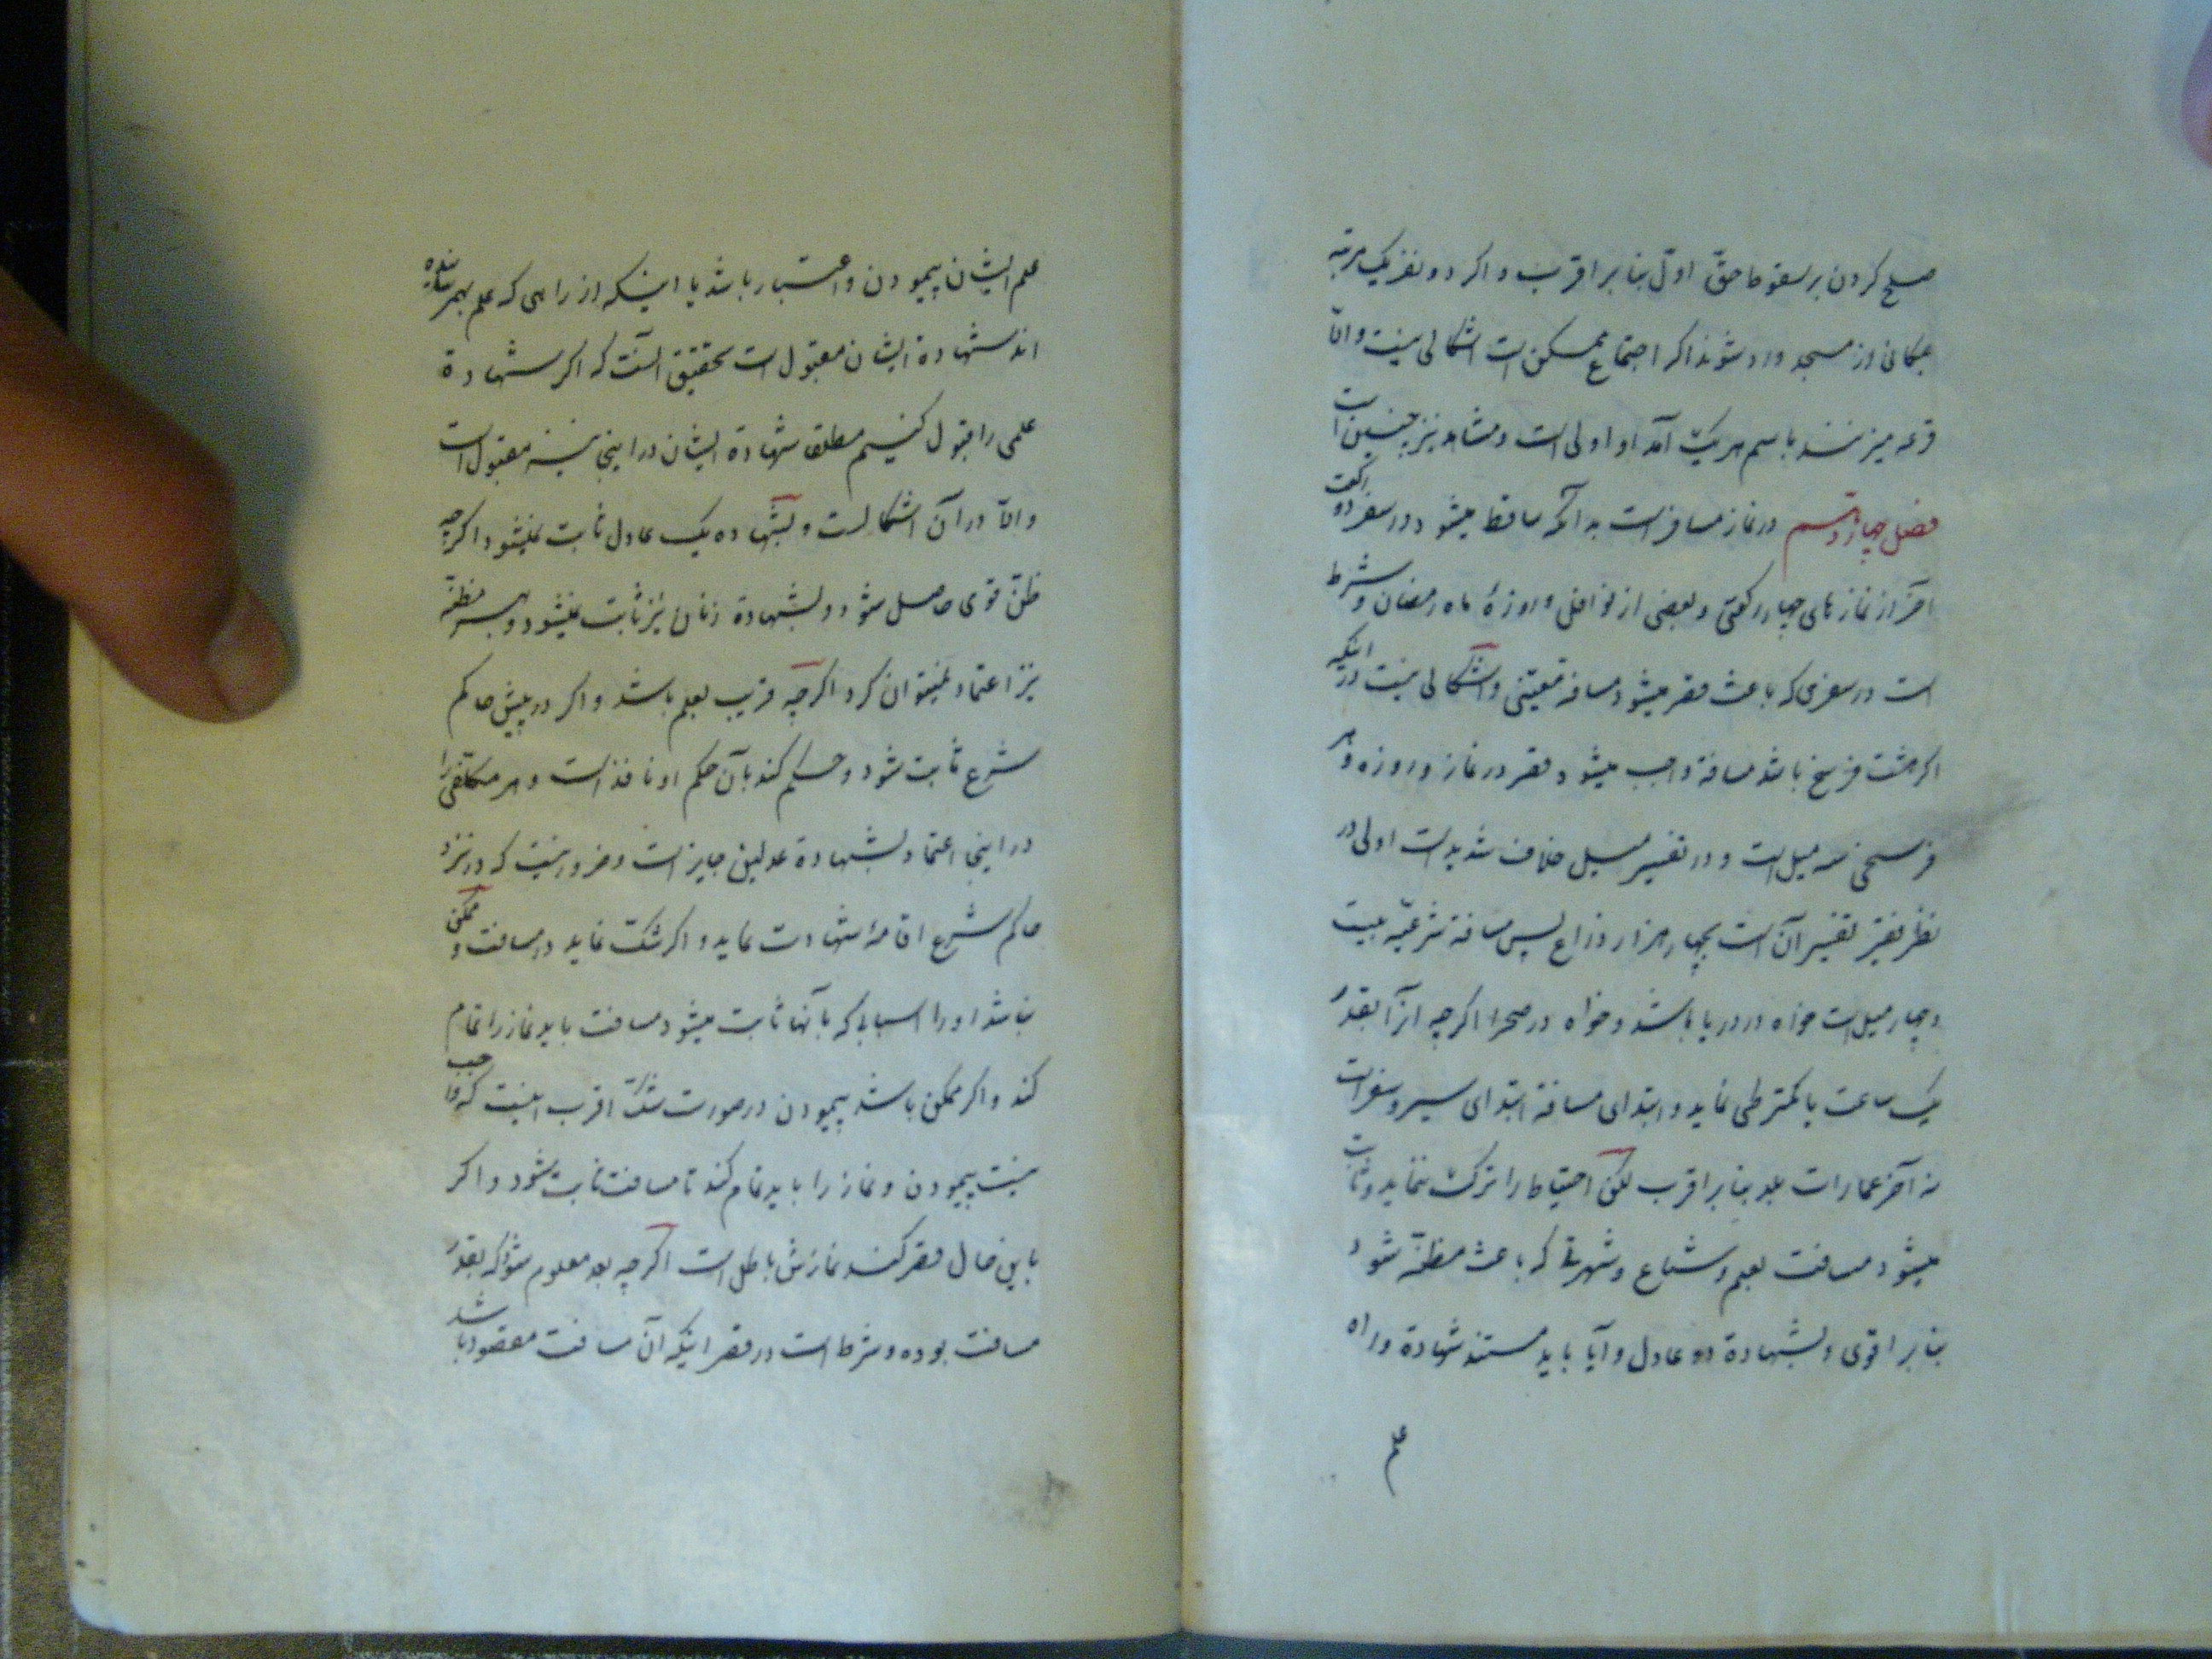 صلح کردن بر سقوط حقّ اوّل بنا بر اقرب و اکر دو نفر یک مرتبه
بمکانی از مسجد وارد شوند اکر اجتماع ممکن است اشکالی نیست و الّا
قرعه میزنند باسم هر یک آمد او اولی است و مشاهد نیز چنین است
فصل چهاردهم در نماز مسافر است بدانکه ساقط میشود در سفر دو رکعت
آخر از نمازهای چهار رکعتی و بعضی از نوافل و روزهٔ ماه رمضان و شرط
است در سفری که باعث قصر میشود مسافة معیّنی و اشکالی نیست در اینکه
اکر هشت فرسخ باشد مسافة واجب میشود قصر در نماز و روزه و هر
فرسخی سه میل است و در تفسیر میل خلاف شدید است اولی در
نظر فقیر تفسیر آن است بچهار هزار ذراع پس مسافة شرعیّه بیست
و چهار میل است خواه در دریا باشد و خواه در صحرا اکرچه آنرا بقدر
یک ساعت یا کمتر طی نماید و ابتدای مسافة ابتدای سیر و سفر است
نه آخر عمارات بلد بنا بر اقرب لکن احتیاط را ترک ننماید و ثابت
میشود مسافت بعلم و شیاع و شهرتی که باعث مظنّه شود
بنا بر اقوی و بشهادة دو عادل و آیا باید مستند شهادة و راه
علم
علم ایشان پیمودن و اعتبار باشد یا اینکه از راهی که علم بهمرسانیده
اند شهادة ایشان مقبول است تحقیق آنست که اکر شهادة
علمی را قبول کنیم مطلق شهادة ایشان در اینجا نیز مقبول است
و الّا در آن اشکالست و بشهاده یک عادل ثابت نمیشود اکرچه
ظنّ قوی حاصل شود و بشهادة زنان نیز ثابت نمیشود و بهر مظنّه
نیز اعتماد نمیتوان کرد اکرچه قریب بعلم باشد و اکر در پیش حاکم
شرع ثابت شود و حکم کند بآن حکم او نافذ است و هر مکلّفی را
در اینجا اعتماد بشهادة عدلین جایز است و ضرور نیست که در نزد
حاکم شرع اقامهٔ شهادت نماید و اکر شکّ نماید در مسافت و ممکن
نباشد او را اسبابی که بآنها ثابت میشود مسافت باید نماز را تمام
کند و اکر ممکن باشد پیمودن در صورت شکّ اقرب اینست که واجب
نیست پیمودن و نماز را باید تمام کند تا مسافت ثابت شود و اکر
باین حال قصر کند نمازش باطل است اکرچه بعد معلوم شود که بقدر
مسافت بوده و شرط است در قصر اینکه آن مسافت مقصود باشد